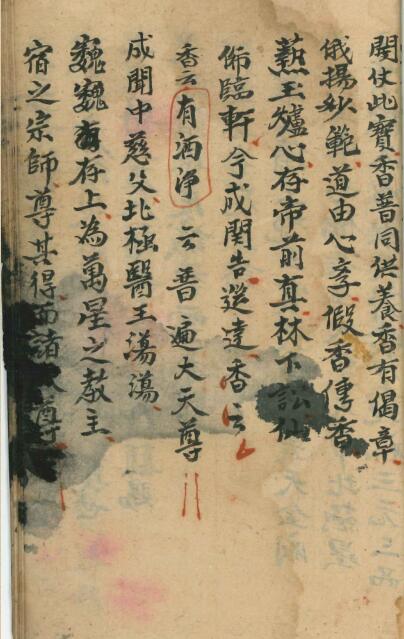 関仗此寶香普同供養香有偈章
俄揚妙範道由心斈假香傳香
爇玉爐心存帝前真林下訟仙
師臨軒今成関告迳達香云
香云有洒淨云普遍大天尊
成聞中慈父北極醫王蕩蕩
巍巍有存上為萬星之教主
宿之宗師尊其得而諸尊